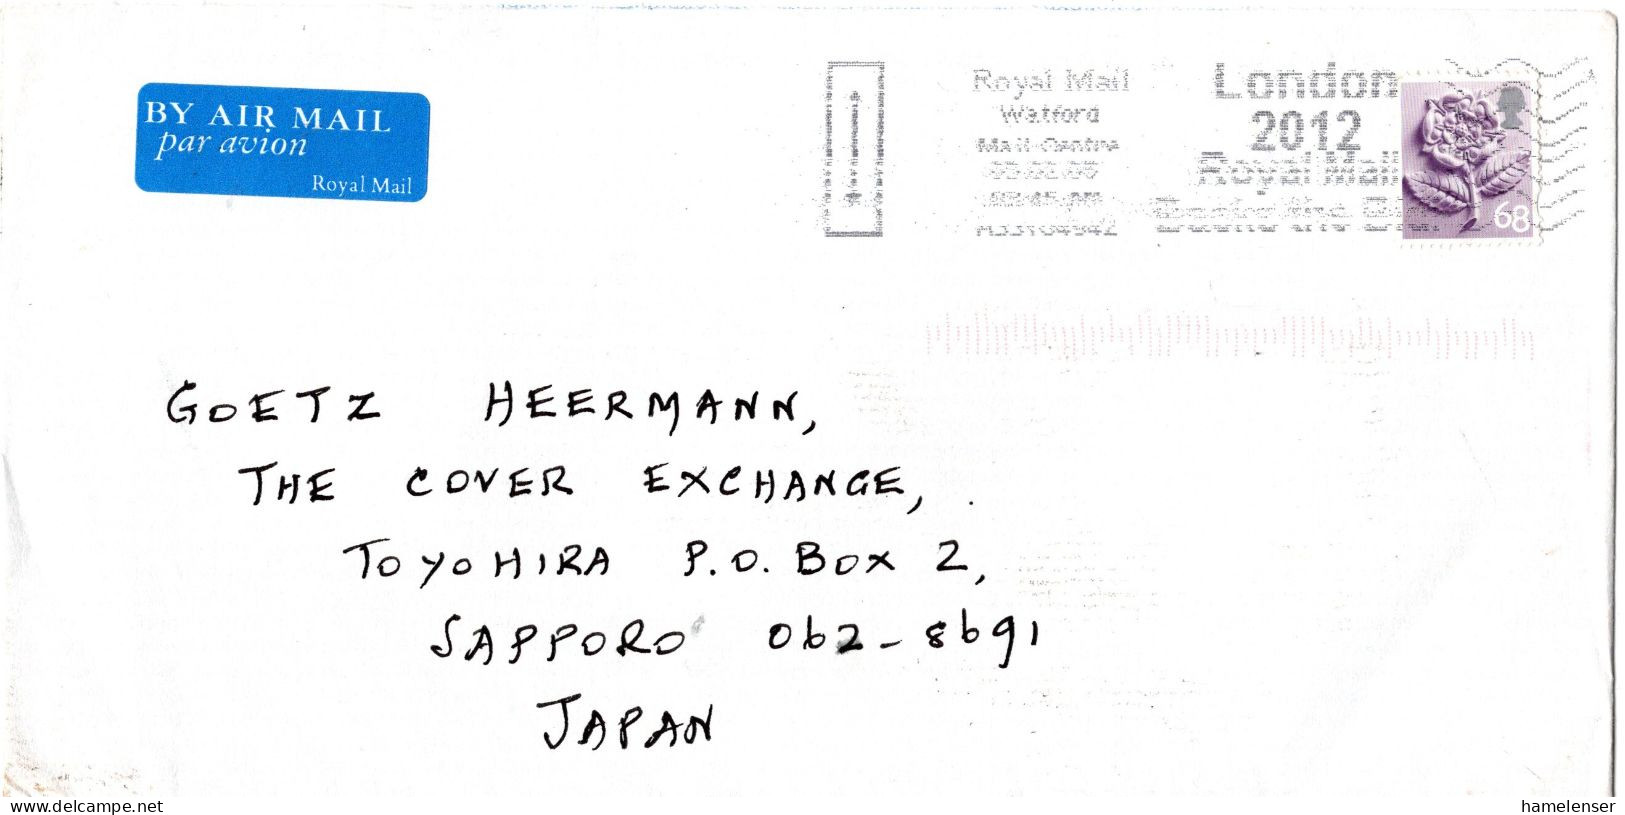 BY AIR MAIL
par avion
Royal Mail
Royal Mail
Watford
Mail Centre
London
2012
Royal Mail
68
GOETZ HEERMANN,
THE COVER EXCHANGE,
TOYOHIRA P.O. BOX 2,
SAPPORO 062-8691
JAPAN
www.delcampe.net
hamelenser